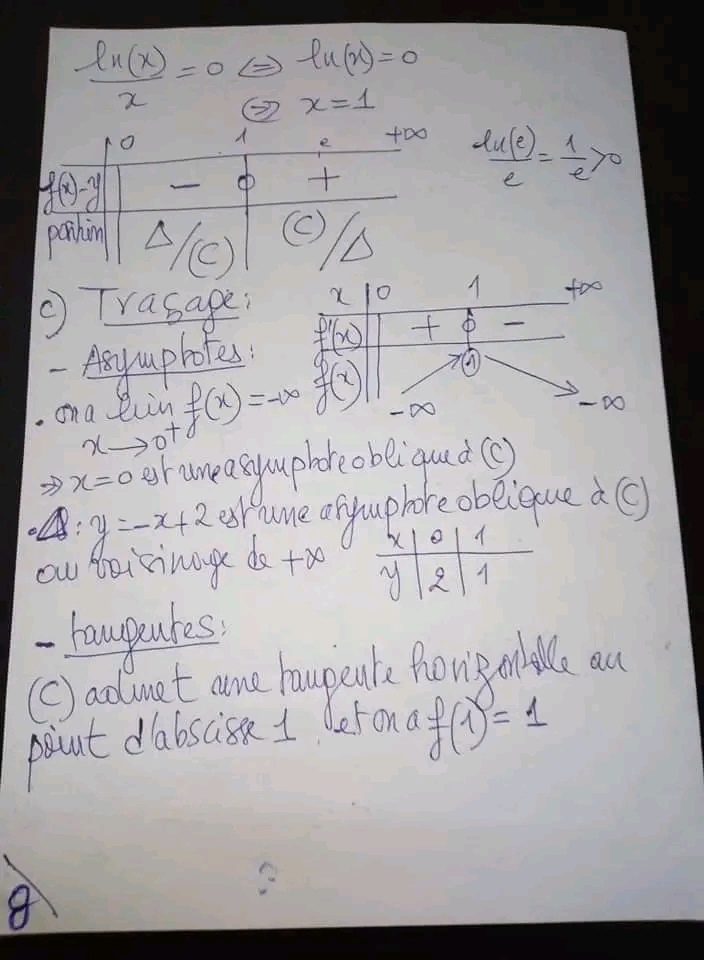 ln(x)/x = 0 ⇔ ln(x) = 0
⇔ x = 1
0 1 e +∞
f(x)-y - 0 +
position Δ/(C) (C)/Δ
ln(e)/e = 1/e > 0
c) Traçage:
x 0 1 +∞
f'(x) + 0 -
f(x) -∞ 1 -∞
- Asymptotes:
. on a lim f(x) = -∞
x → 0⁺
⇒ x = 0 est une asymptote oblique à (C)
. Δ: y = -x+2 est une asymptote oblique à (C)
au voisinage de +∞
x 0 1
y 2 1
- tangentes:
(C) admet une tangente horizontale au
point d'abscisse 1 et on a f(1) = 1
8